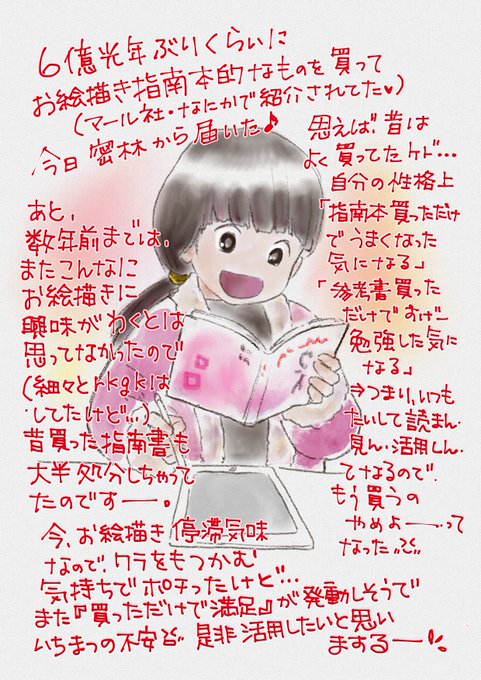 6億光年ぶりくらいに
お絵描き指南本的なものを買って
(マール社・なにかで紹介されてた♥)
今日密林から届いた♪
思えば、昔は
よく買ってたケド…
自分の性格上
「指南本買っただけ
でうまくなった
気になる」
「参考書買った
だけですげー
勉強した気に
なる」
⇒つまり、いつも
たいして読まん・
見ん・活用しん・
てなるので、
もう買うの
やめよーーって
なった
あと、
数年前までは、
またこんなに
お絵描きに
興味がわくとは
思ってなかったので
(細々とrkgkは
してたけど…)
昔買った指南書も
大半処分しちゃって
たのですー。
今、お絵描き停滞気味
なので、ワラをもつかむ
気持ちでポチったけど…
また『買っただけで満足』が発動しそうで
いちまつの不安 是非活用したいと思い
まするー